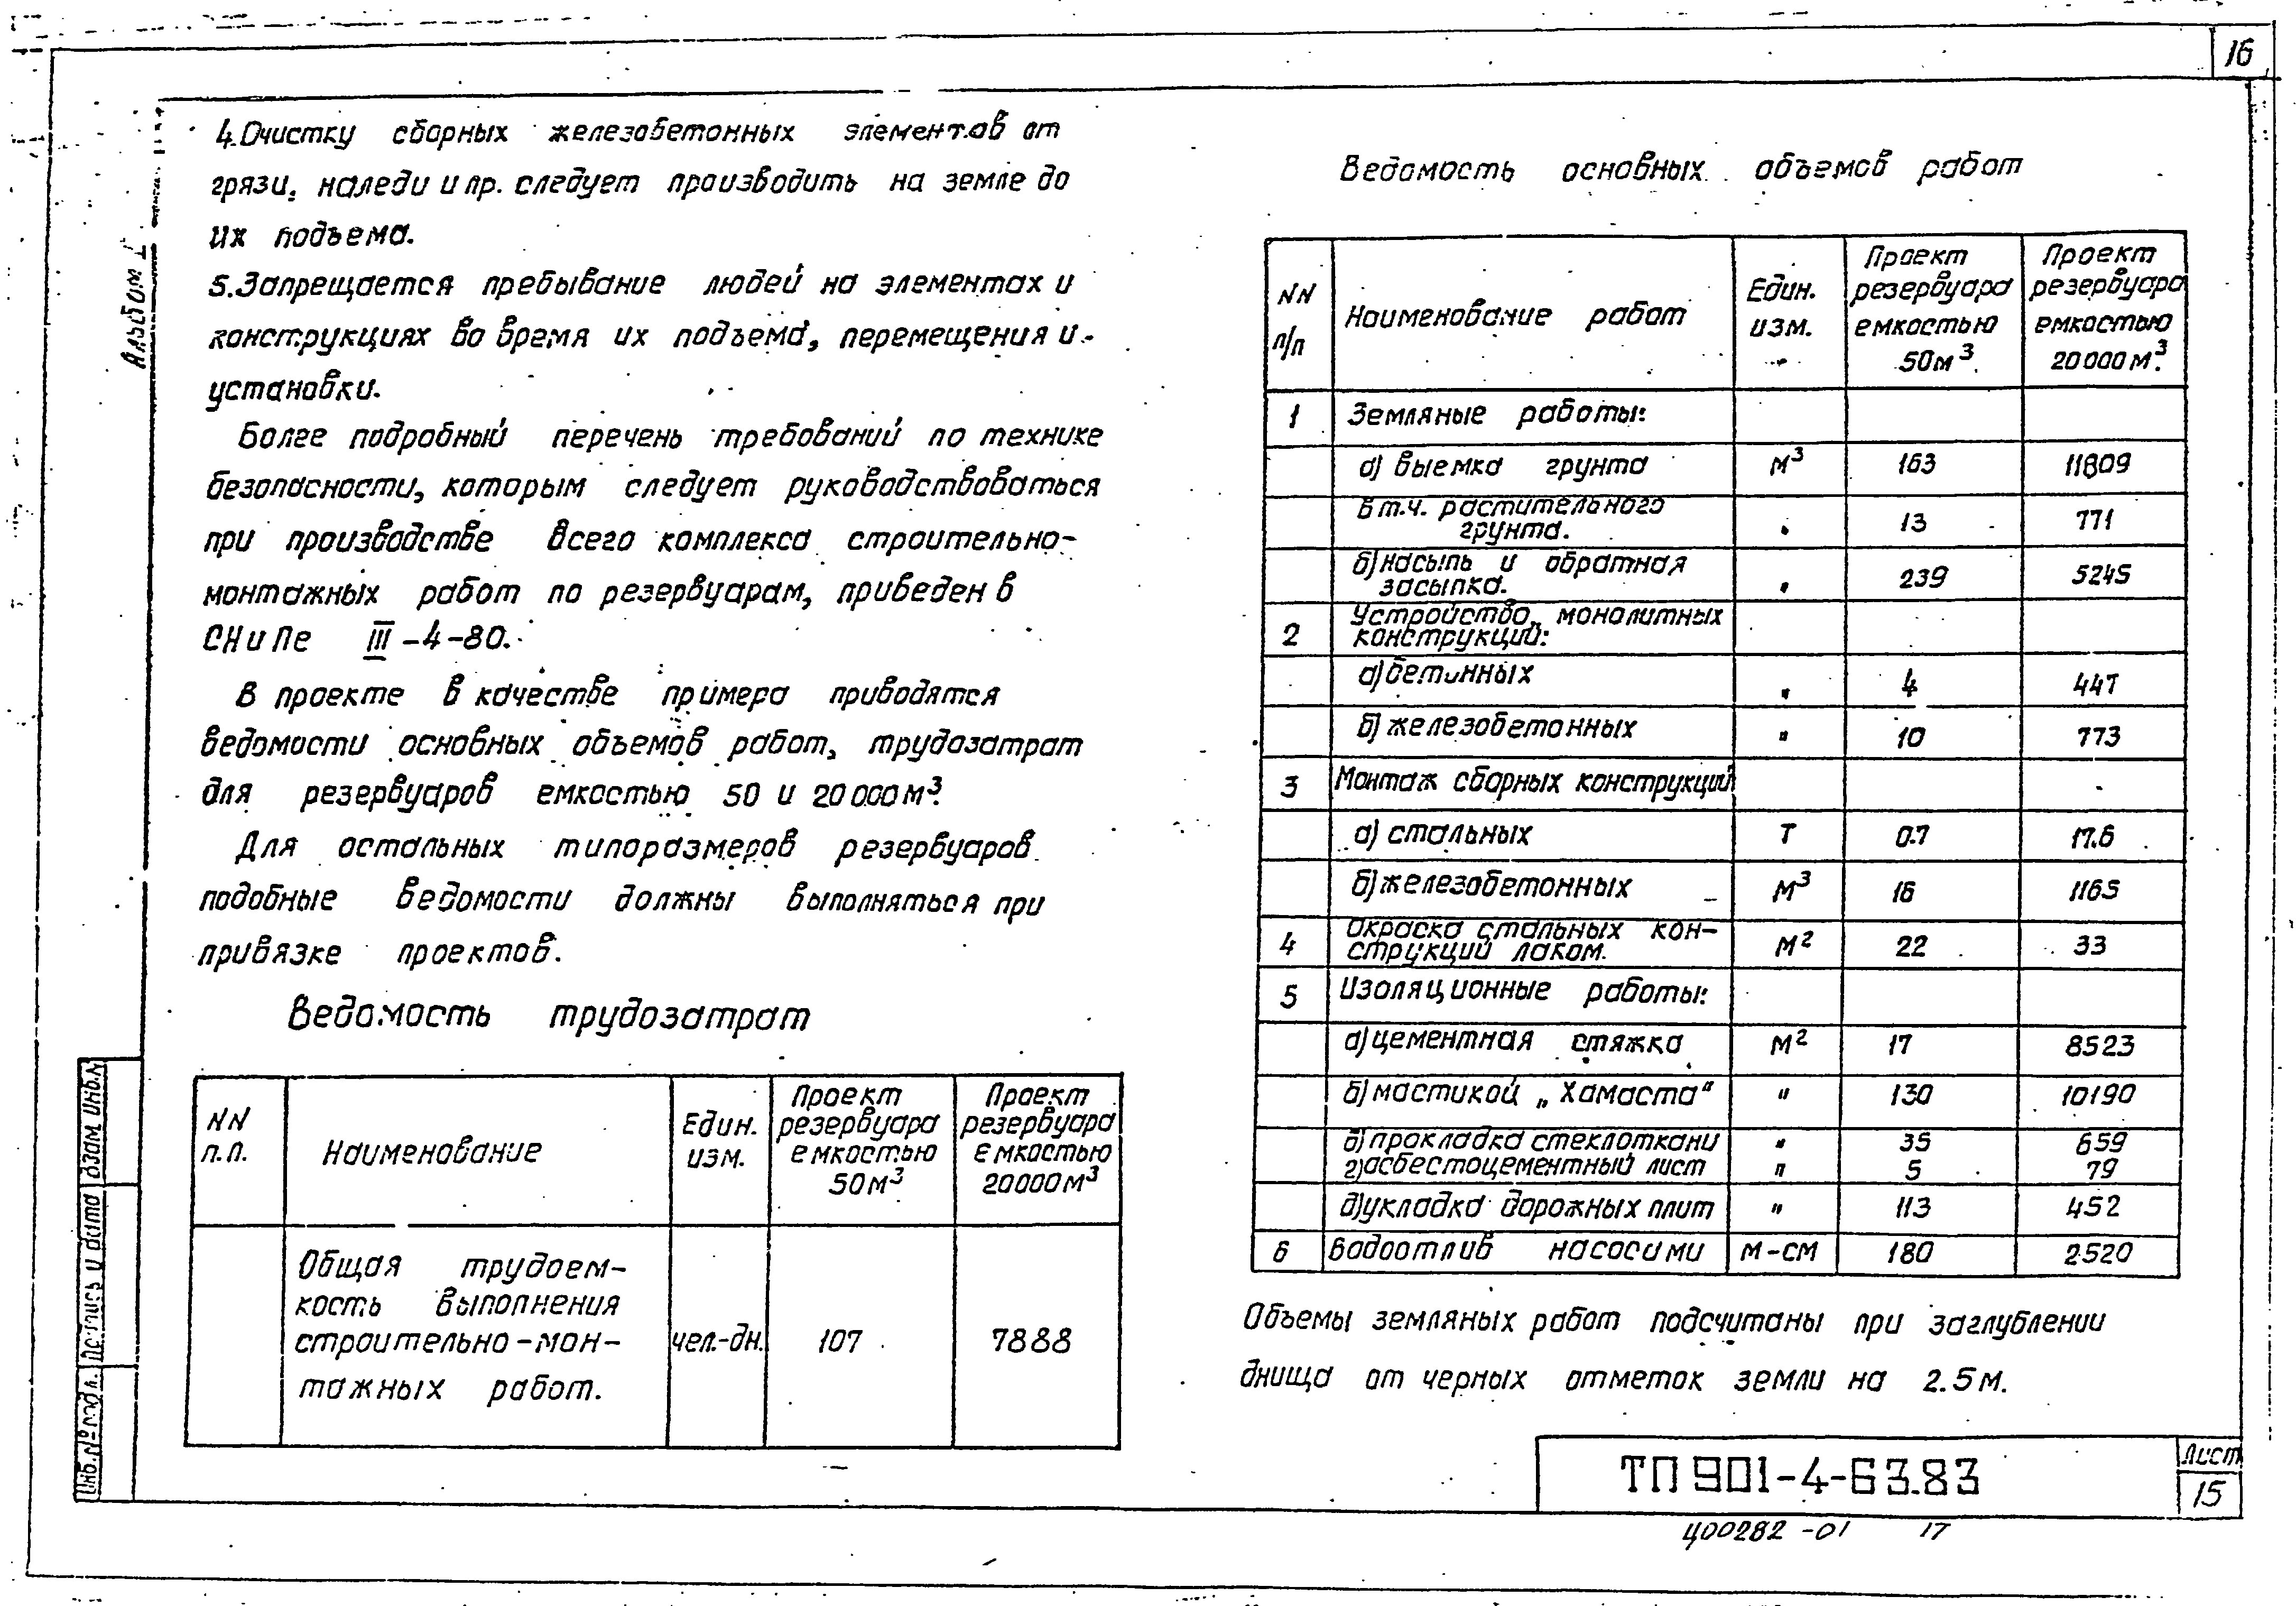 16
Альбом I
4. Очистку сборных железобетонных элементов от
грязи, наледи и пр. следует производить на земле до
их подъема.
5. Запрещается пребывание людей на элементах и
конструкциях во время их подъема, перемещения и
установки.
Более подробный перечень требований по технике
безопасности, которым следует руководствоваться
при производстве всего комплекса строительно-
монтажных работ по резервуарам, приведен в
СНиПе III-4-80.
В проекте в качестве примера приводятся
ведомости основных объемов работ, трудозатрат
для резервуаров емкостью 50 и 20000 м³.
Для остальных типоразмеров резервуаров
подобные ведомости должны выполняться при
привязке проектов.
Ведомость трудозатрат
NN п.п. | Наименование | Един. изм. | Проект резервуара емкостью 50м³ | Проект резервуара емкостью 20000м³
Общая трудоем-
кость выполнения
строительно-мон- чел.-дн. 107 7888
тажных работ.
Ведомость основных объемов работ
NN п/п | Наименование работ | Един. изм. | Проект резервуара емкостью 50м³ | Проект резервуара емкостью 20000м³.
1 Земляные работы:
а) выемка грунта м³ 163 11809
в т.ч. растительного
грунта. " 13 771
б) насыпь и обратная
засыпка. " 239 5245
2 Устройство монолитных
конструкций:
а) бетонных " 4 447
б) железобетонных " 10 773
3 Монтаж сборных конструкций
а) стальных т 0.7 17.6
б) железобетонных м³ 16 1165
4 Окраска стальных кон-
струкций лаком. м² 22 33
5 Изоляционные работы:
а) цементная стяжка м² 17 8523
б) мастикой „Хамаста" " 130 10190
в) прокладка стеклоткани " 35 659
г) асбестоцементный лист " 5 79
д) укладка дорожных плит " 113 452
6 Водоотлив насосами м-см 180 2520
Объемы земляных работ подсчитаны при заглублении
днища от черных отметок земли на 2.5 м.
Инв.№ подл. Подпись и дата Взам. инв.№
ТП 901-4-63.83
Лист
15
Ц00282-01 17